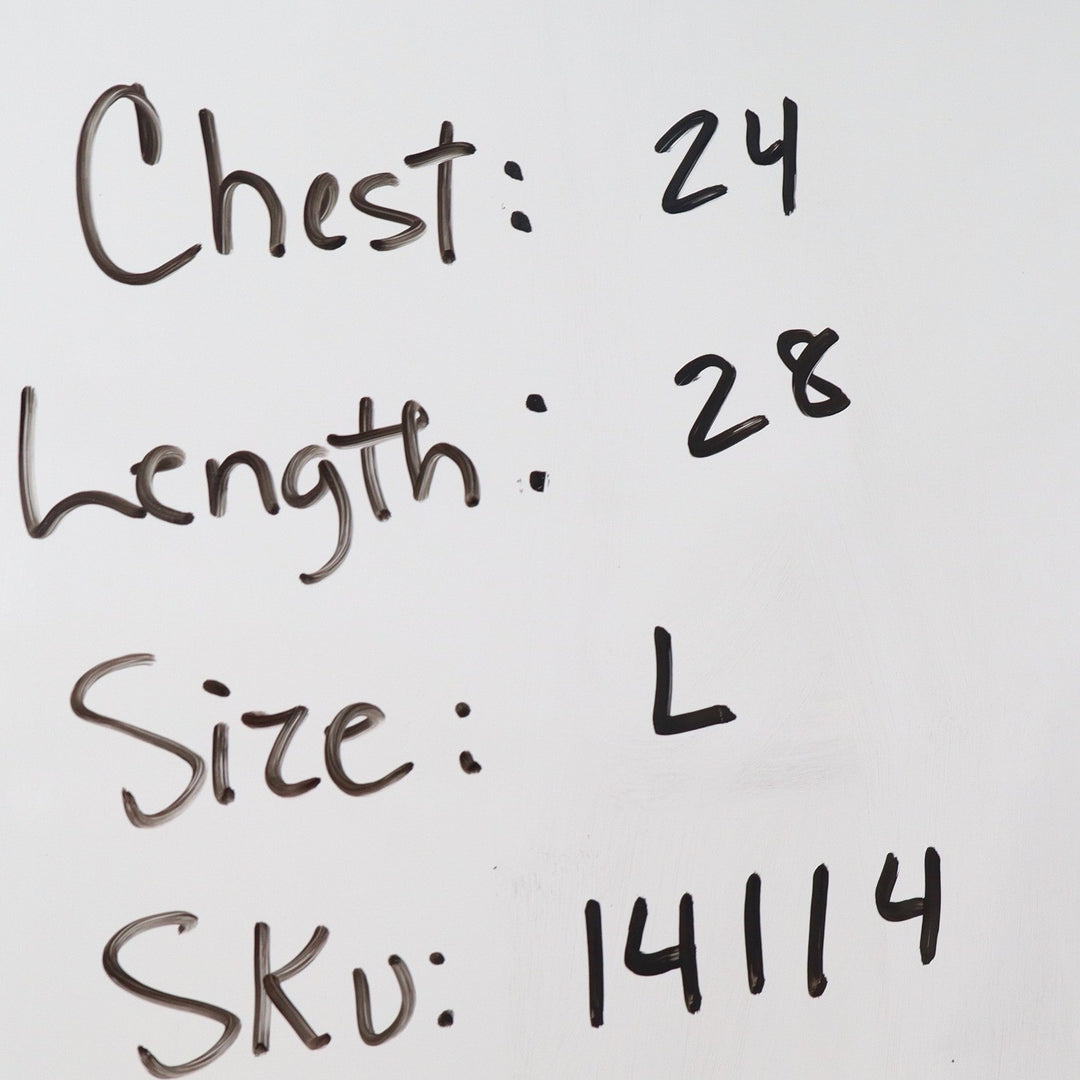 Chest: 24
Length: 28
Size: L
SKU: 14114